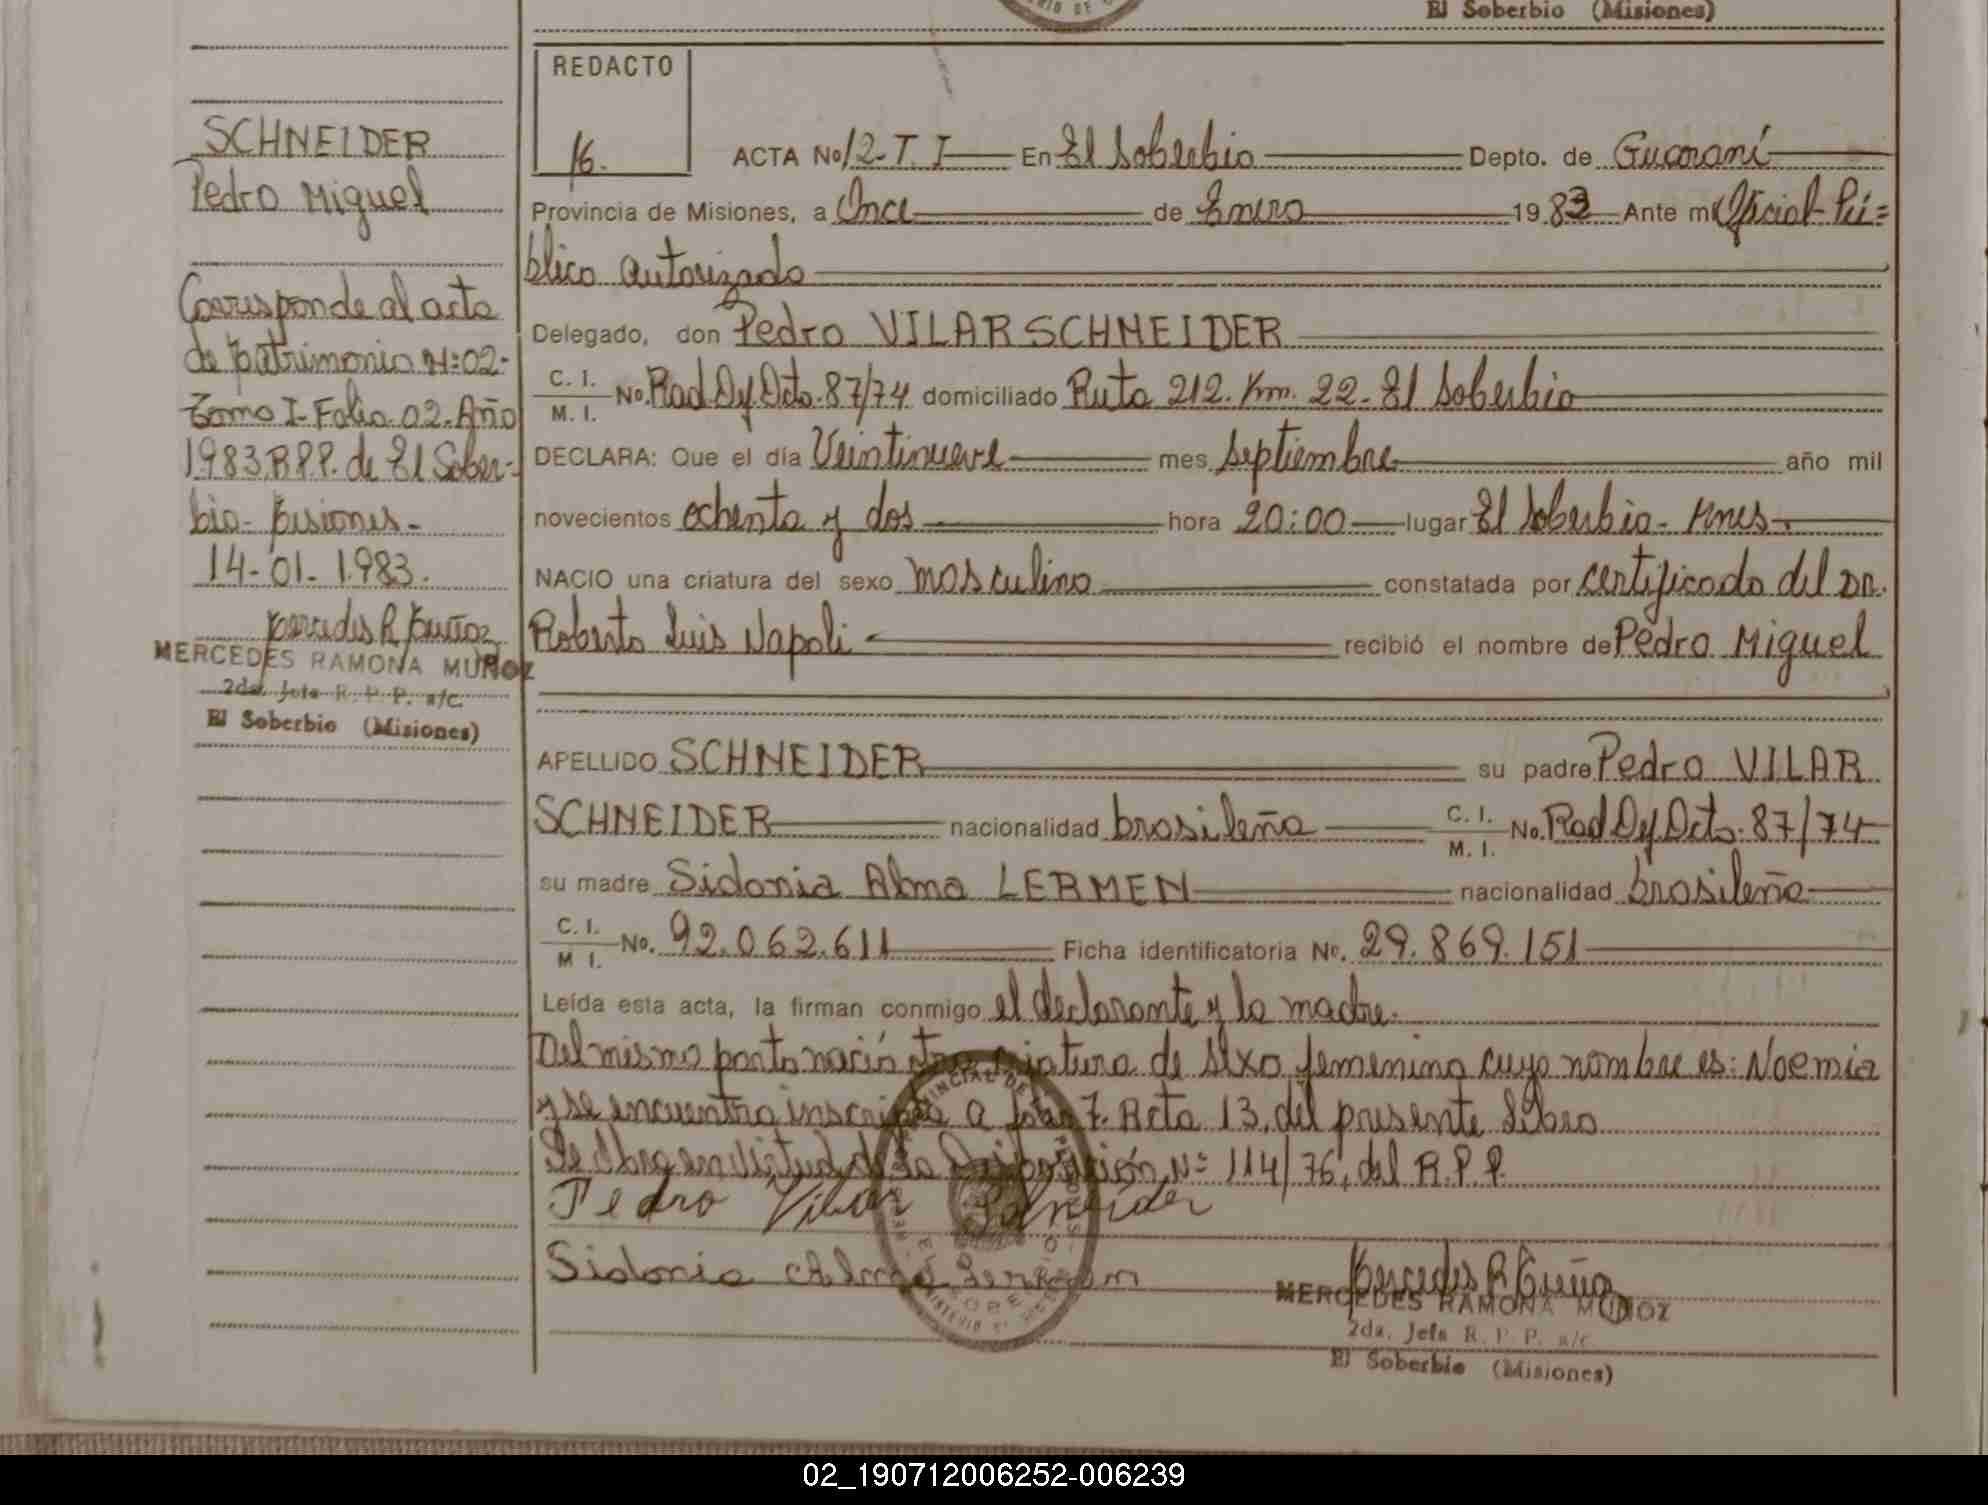 El Soberbio (Misiones)
REDACTO
16.
ACTA No 12-T. I En El Soberbio Depto. de Guaraní
Provincia de Misiones, a Once de Enero 1983 Ante mi Oficial Pú=
blico autorizado
Delegado, don Pedro VILAR SCHNEIDER
C. I.
M. I. No. Rad Dy Dcto. 87/74 domiciliado Ruta 212. Km. 22. El Soberbio
DECLARA: Que el día Veintinueve mes septiembre año mil
novecientos ochenta y dos hora 20:00 lugar El Soberbio - Mnes-
NACIO una criatura del sexo masculino constatada por certificado del DR.
Roberto Luis Napoli recibió el nombre de Pedro Miguel
APELLIDO SCHNEIDER su padre Pedro VILAR
SCHNEIDER nacionalidad brasileña C. I.
M. I. No. Rad Dy Dcto. 87/74
su madre Sidonia Alma LERMEN nacionalidad brasileña
C. I.
M I. No. 92.062.611 Ficha identificatoria No. 29.869.151
Leída esta acta, la firman conmigo el declarante y la madre.
Del mismo parto nació otra criatura de sexo femenino cuyo nombre es: Noemia
y se encuentra inscripta a folio 7. Acta 13. del presente Libro
Se labra en virtud de la Disposición Nº 114/76, del R.P.P.
Pedro Vilar Schneider
Sidonia Alma Lermen
Mercedes R Muñoz
MERCEDES RAMONA MUÑOZ
2da. Jefa R. P. P. a/c.
El Soberbio (Misiones)
SCHNEIDER
Pedro Miguel
Corresponde al acta
de Matrimonio Nº 02-
Tomo I-Folio 02-Año
1983.R.P.P. de El Sober-
bio- Misiones-
14-01-1983.
Mercedes R Muñoz
MERCEDES RAMONA MUÑOZ
2da. Jefa R. P. P. a/c.
El Soberbio (Misiones)
02_190712006252-006239